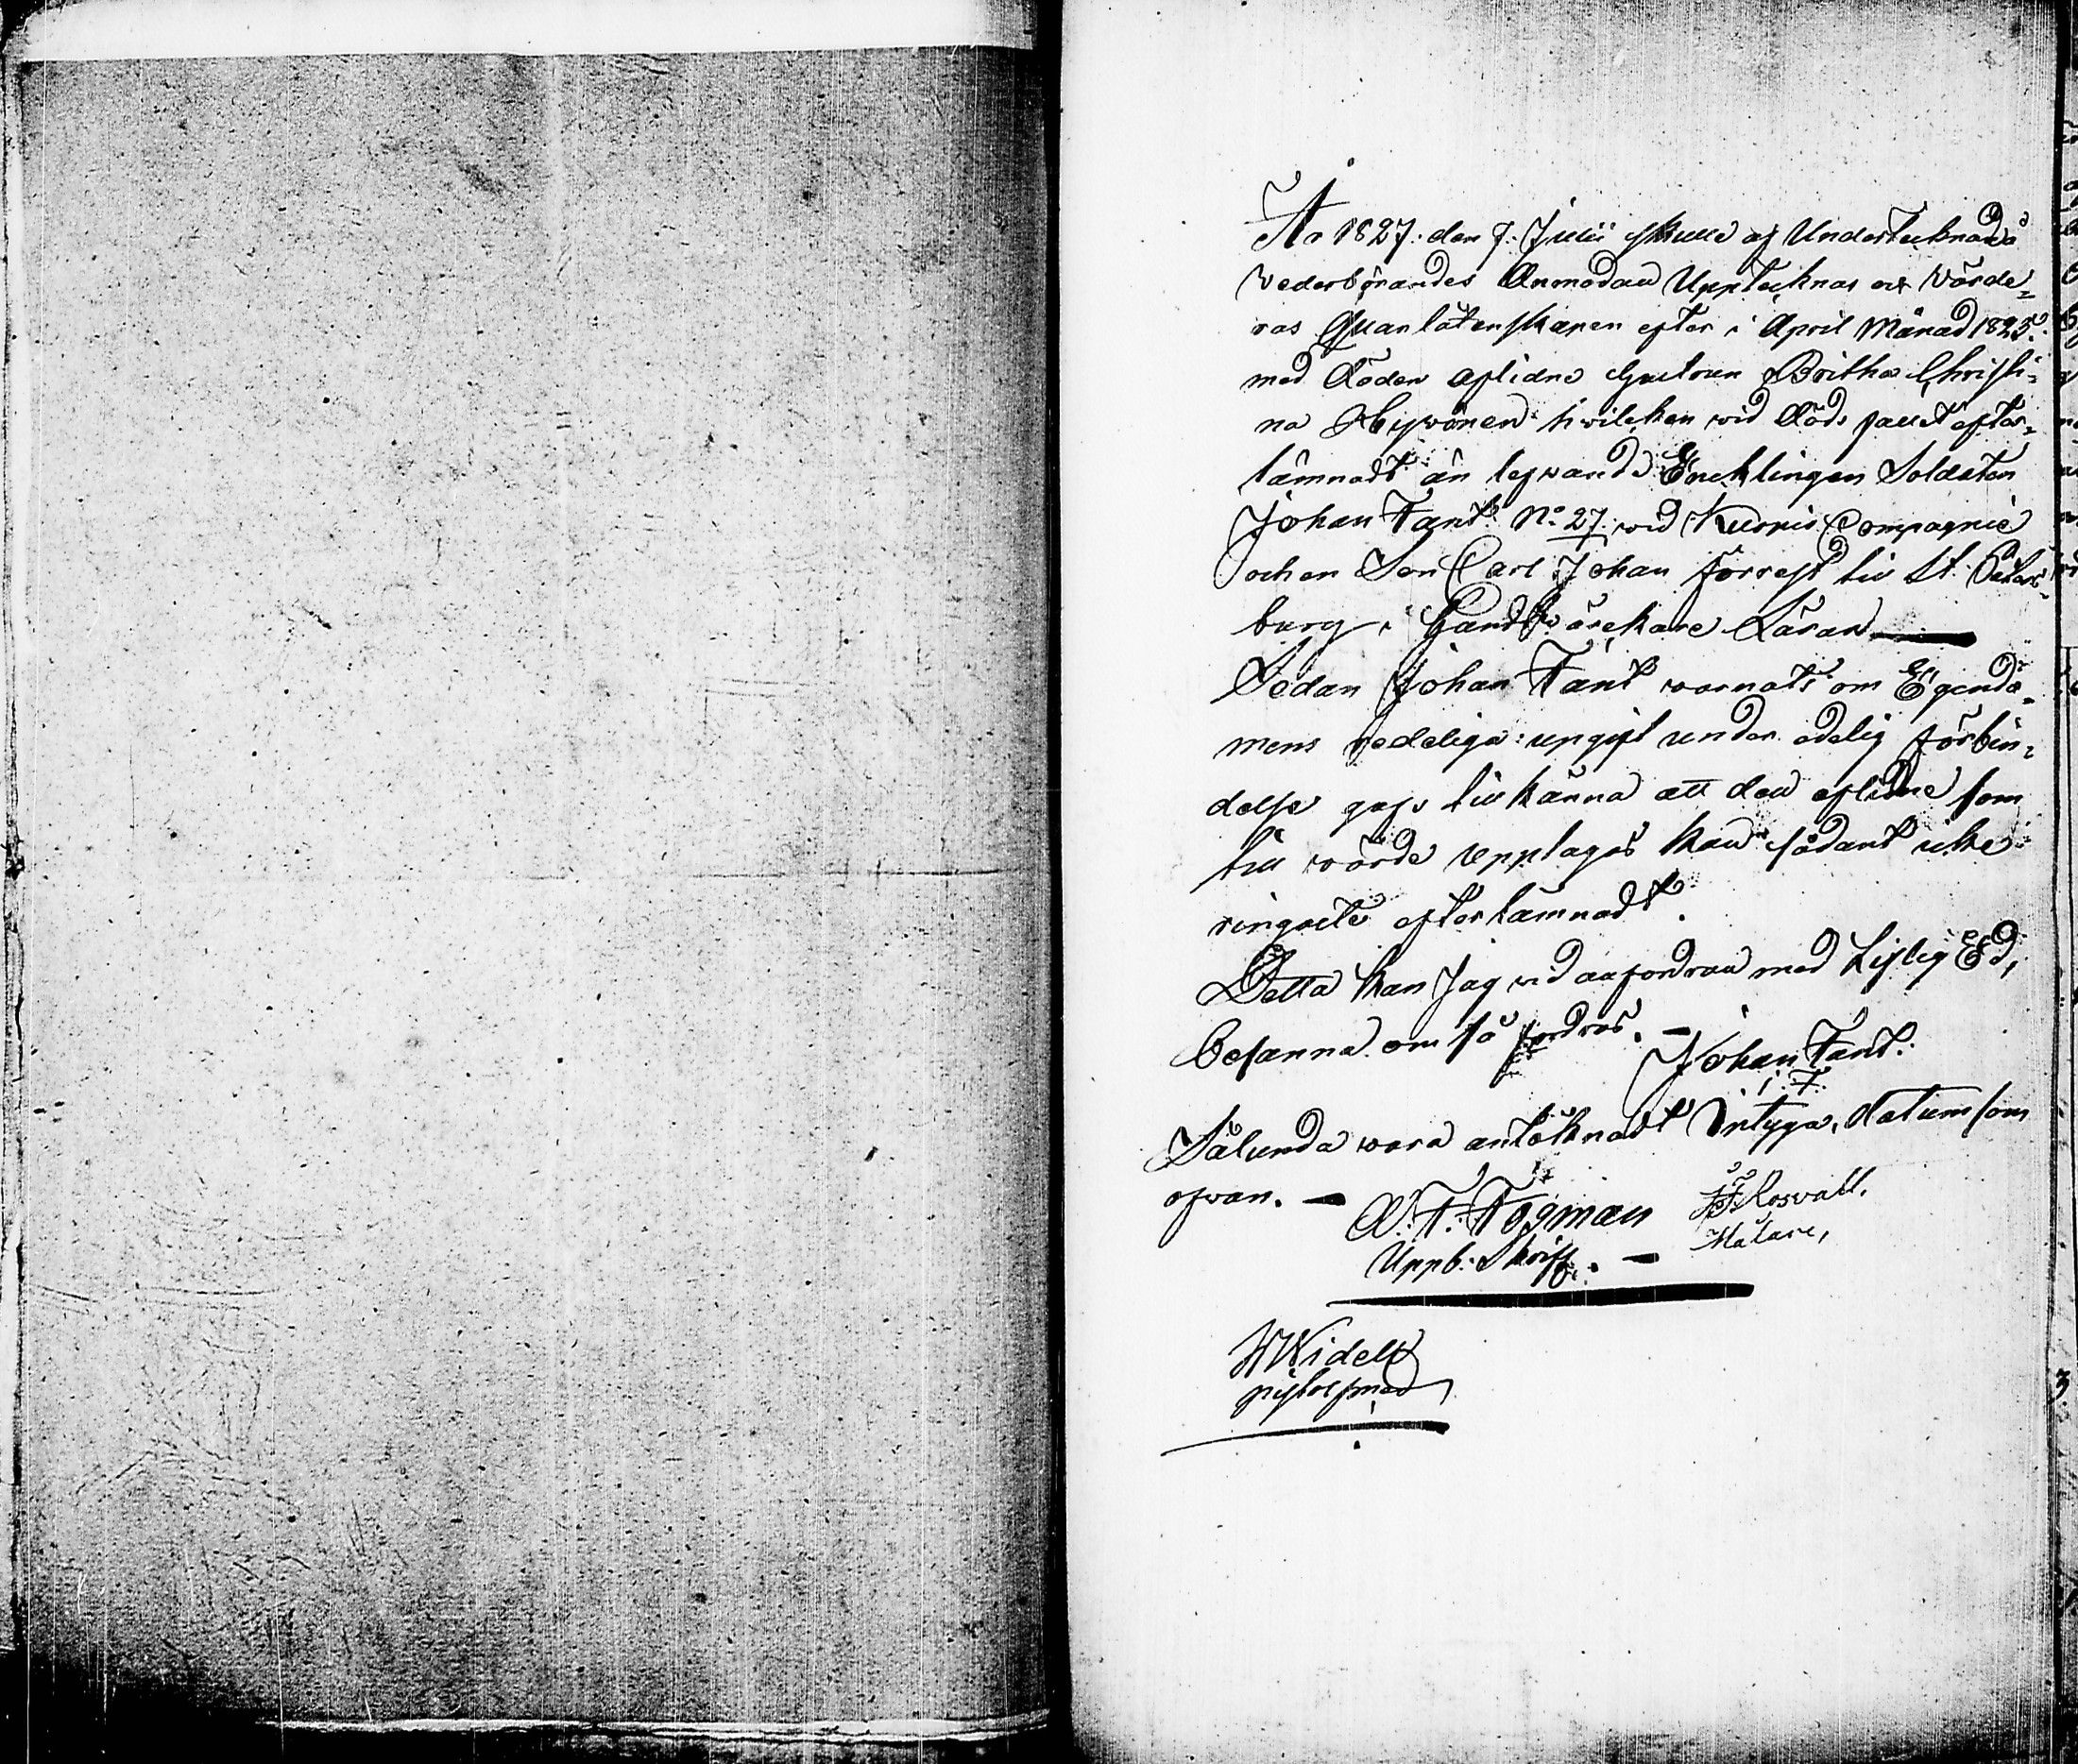 År 1827. den 7. Julii skulle af Undertecknad å
Vederbörandes Anmodan Upptecknas och Värde=
ras Qvarlåtenskapen efter i April Månad 1825.
med Döden aflidne Hustrun Britha Christi=
na Hyvönen hvilcken vid Döds fallet efter=
lämnadt än lefvande Encklingen Soldaten
Johan Fant No 27. vid Kuopio Compagnie
och en Son Carl Johan förrest till St. Peters=
burg i Handtvärckare Läran
Sedan Johan Fant varnats om Egendo=
mens redeliga upgift under edelig förbin=
delse gafs tillkänna att den aflidne som
till värde upptagas kan sådant icke
ringaste efterlämnadt.
Detta kan Jag vid anfordran med Liflig Ed,
besanna om så fordras.
Johan Fant.
Sålunda vara antecknadt Intyga, datum som
ofvan. A. F. Fogman
Uppb: Skrifv.
Rosvall.
Målare,
Widell